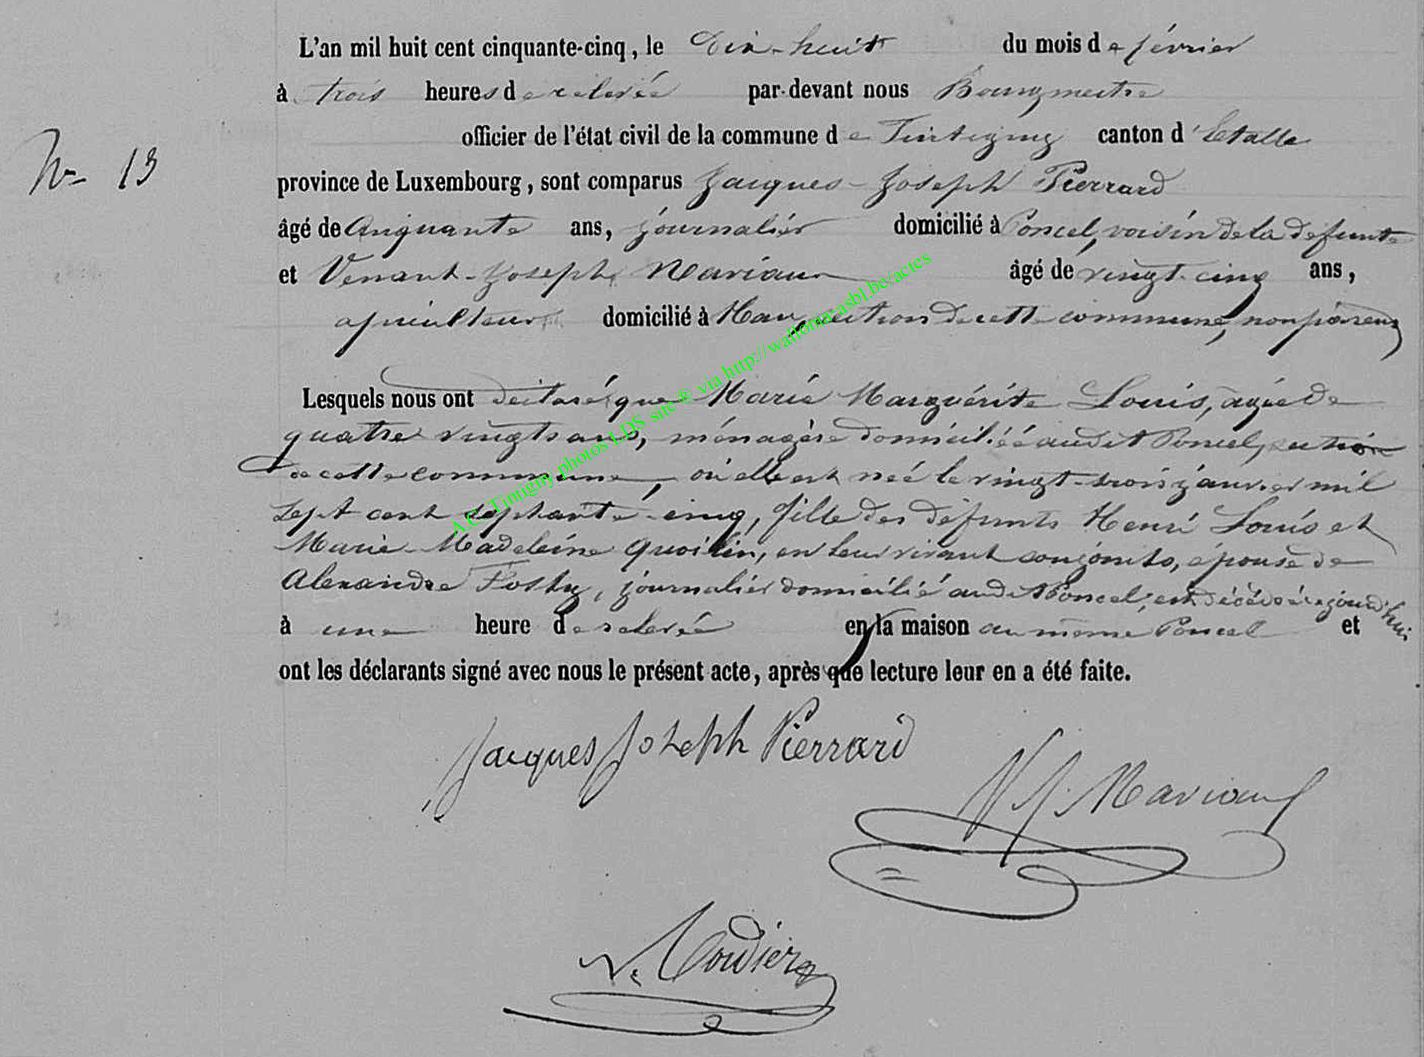 L'an mil huit cent cinquante-cinq, le Dix-huit du mois de février
à trois heures de relevée par-devant nous Bourgmestre
officier de l'état civil de la commune de Tintigny canton d'Etalle
N° 13
province de Luxembourg, sont comparus Jacques-Joseph Pierrard
âgé de Cinquante ans, journalier domicilié à Poncel, voisin de la défunte
et Venant-Joseph Mariaux âgé de vingt-cinq ans,
domicilié à Han, section de cette commune, non parens
Lesquels nous ont déclaré que Marie Marguérite Louis, agée de
quatre vingts ans, ménagère domiciliée audit Poncel, section
de cette commune, où elle est née le vingt-trois janvier mil
sept cent septante-cinq, fille des défunts Henri Louis et
Marie-Madeleine Quoilin, en leur vivant conjoints, épouse de
Alexandre Fosty, journalier domicilié audit Poncel, est décédée aujourd'hui
à une heure de relevée en la maison au même Poncel et
ont les déclarants signé avec nous le présent acte, après que lecture leur en a été faite.
Jacques Joseph Pierrard
V J. Mariaux
A.C. Tintigny photos LDS site ® via http://wallonia-asbl.be/actes